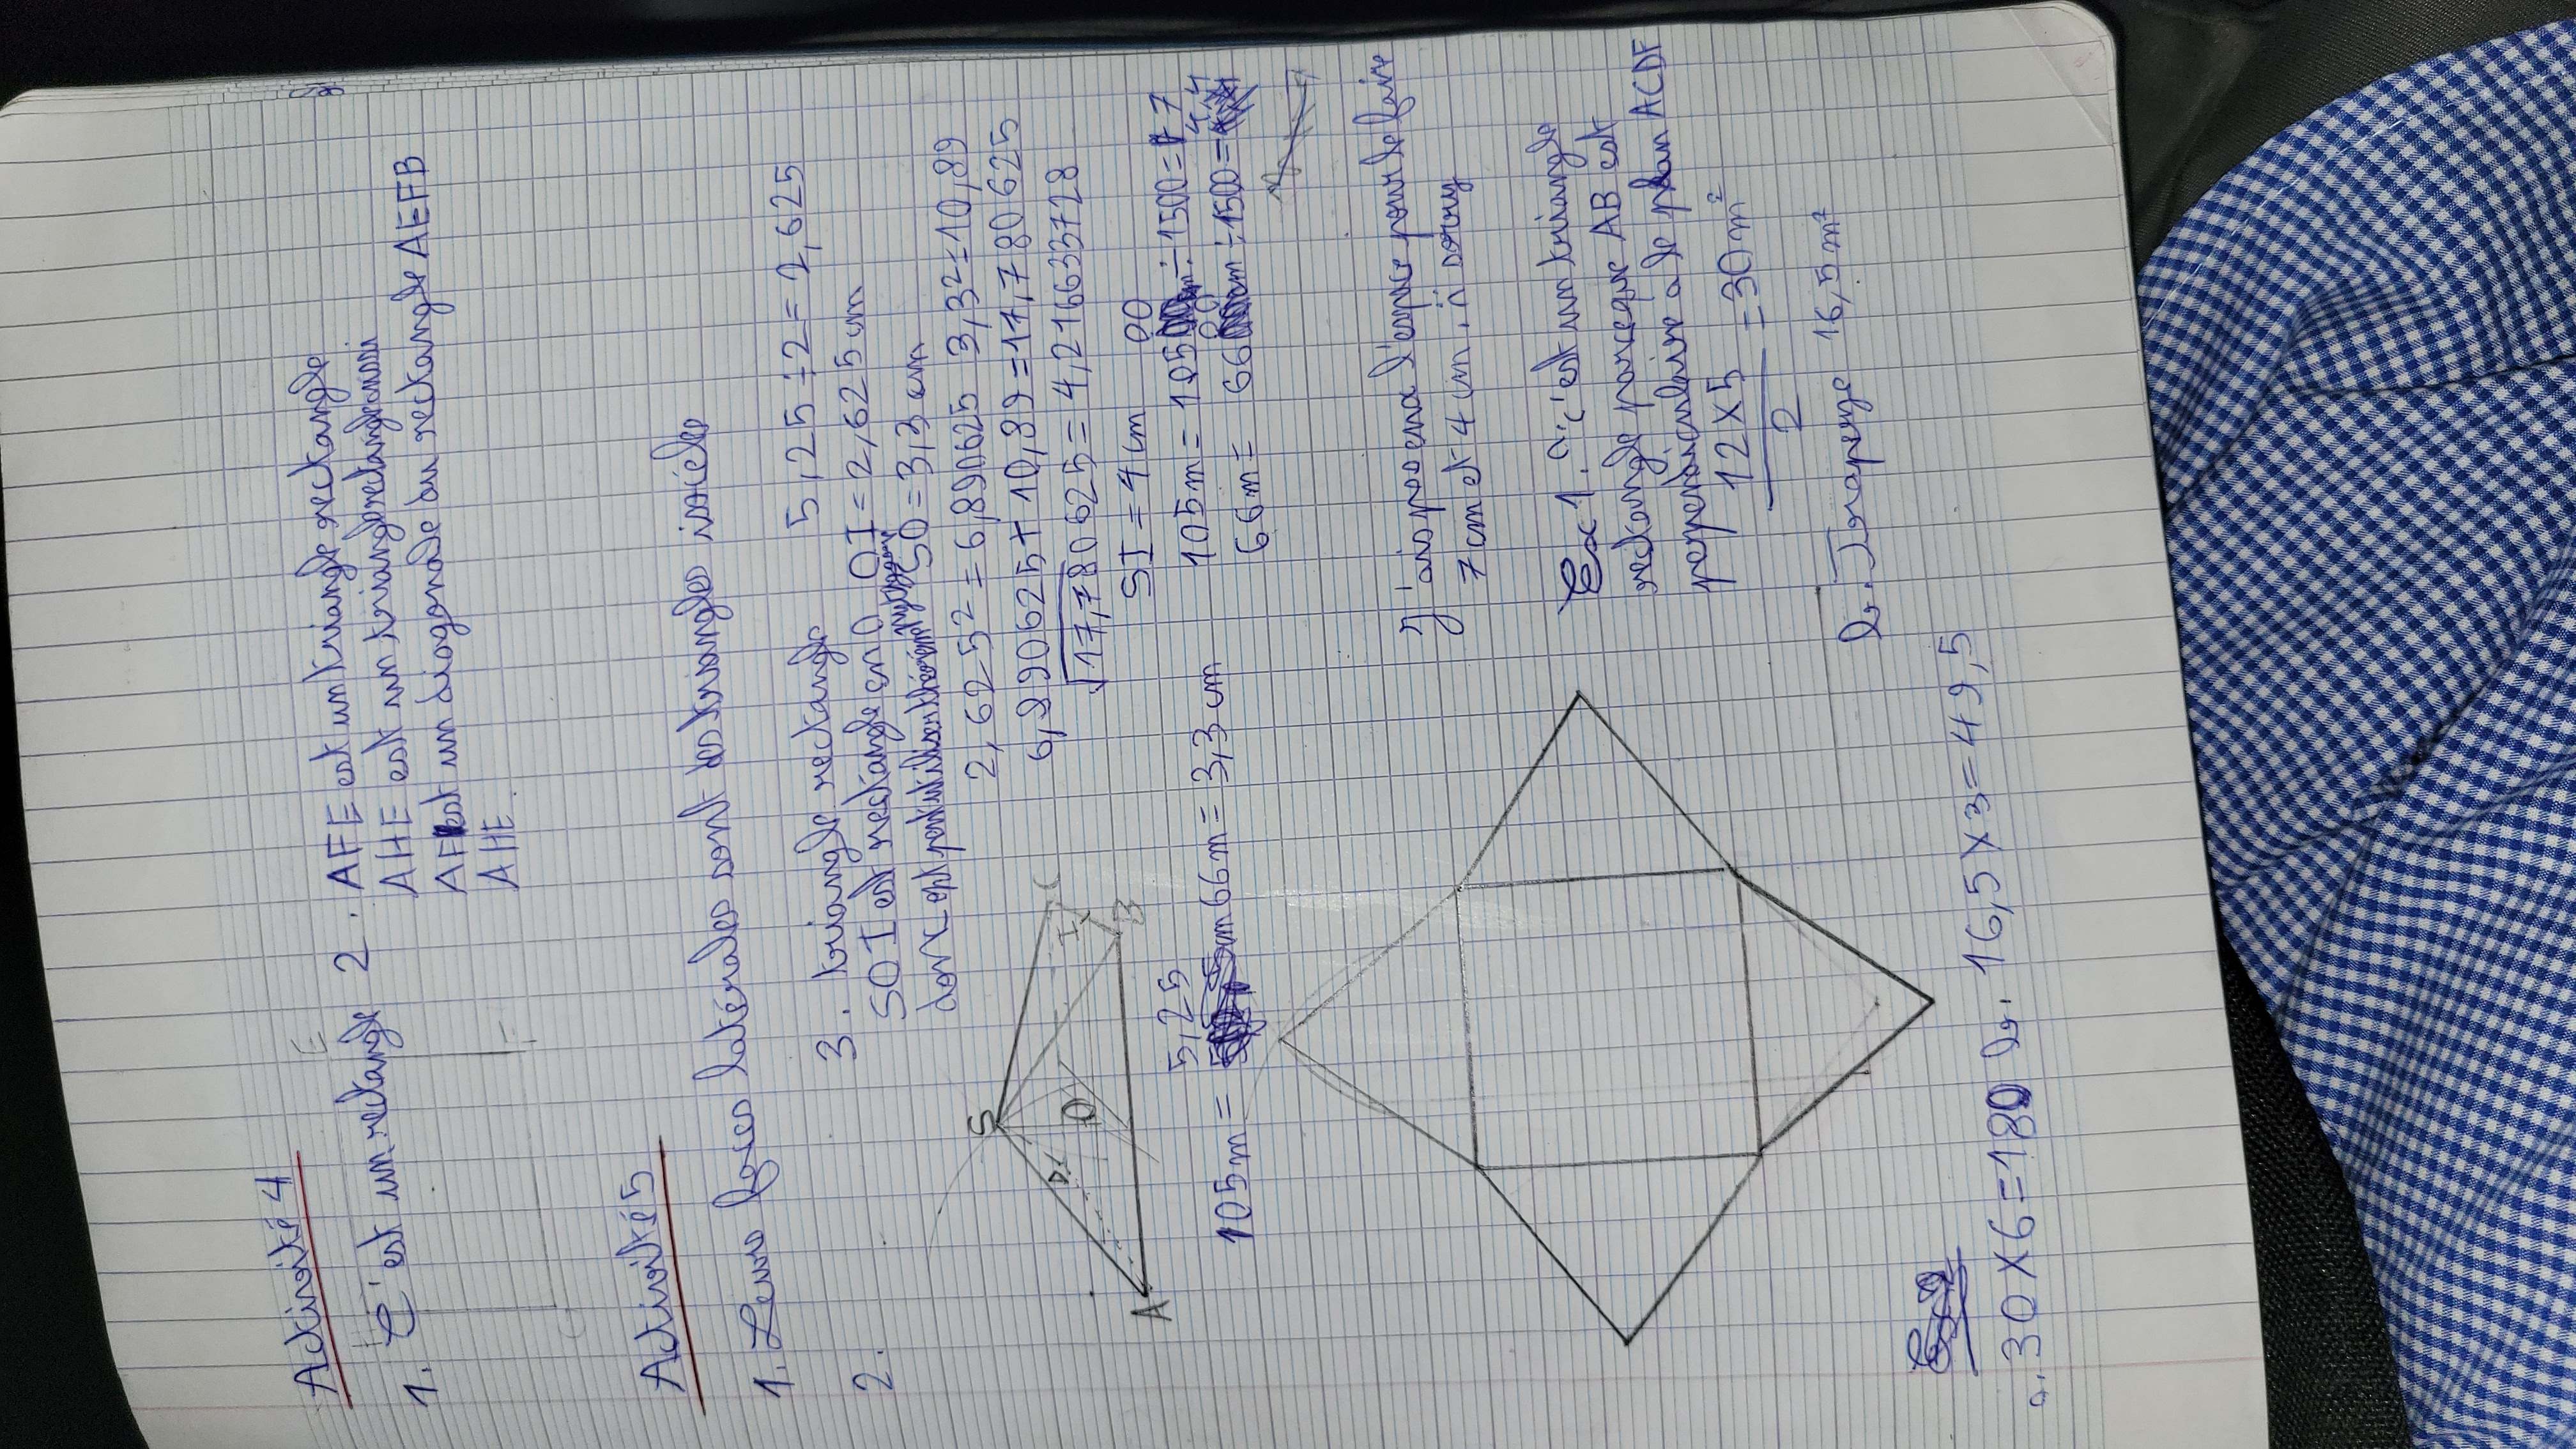 Activité 4
1. C'est un rectangle
E
F
2. AFE est un triangle rectangle
AHE est un triangle rectangle aussi
AF est un diagonale du rectangle AEFB
AHE
Activité 5
1. Leurs faces latérales sont des triangles isocèles
2.
S
D
O
I
C
B
A
3. triangle rectangle 5,25÷2=2,625
SOI est rectangle en O OI=2,625cm
donc on peut utiliser SO=3,3cm
2,625²=6,890625 3,3²=10,89
6,890625+10,89=17,780625
√17,780625=4,216633728
SI=4cm
105m= 5,25 cm 66m=3,3cm
105m=10500cm÷1500=7
66m=6600cm÷1500=4,4
J'ai pas eu l'espace pour le faire
7cm et 4cm, i'm sorry
Ex 1. a. C'est un triangle
rectangle parce que AB est
perpendiculaire a le plan ACDF
12×5/2=30m²
b. 16,5m²
a. 30×6=180 b. 16,5×3=49,5